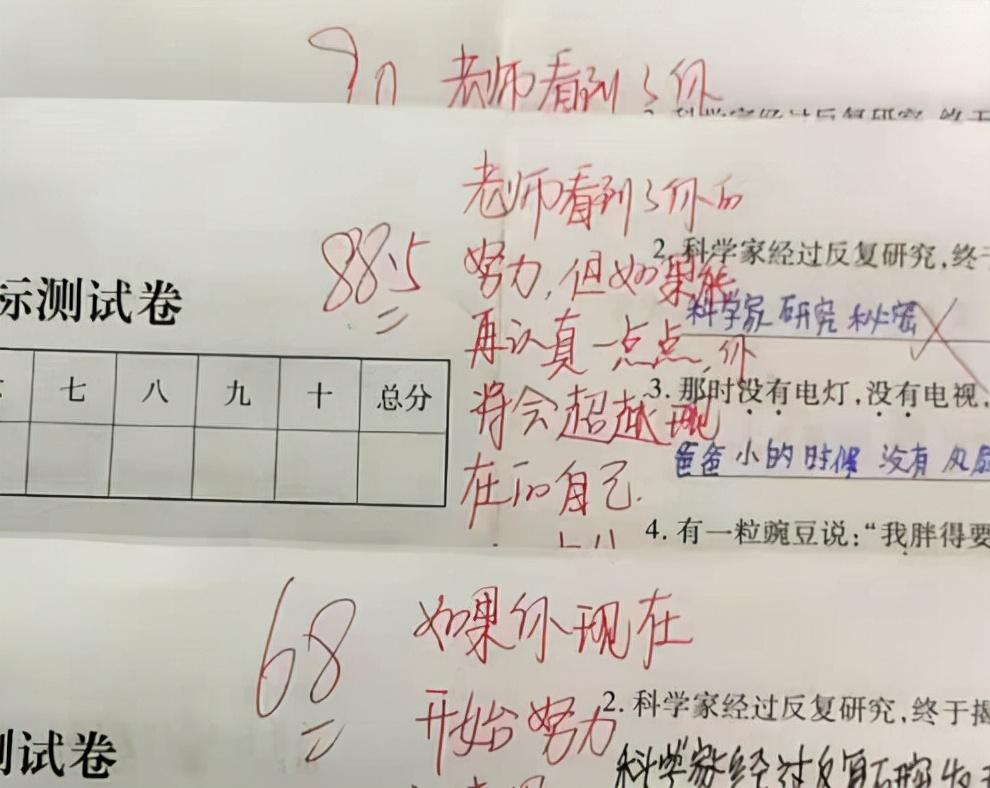 90 老师看到了你
老师看到了你的
88.5 努力,但如果能
2. 科学家经过反复研究,终于
科学家研究秘密
再认真一点点,你
标测试卷
七 八 九 十 总分
3. 那时没有电灯,没有电视,
将会超越现
爸爸小的时候 没有风扇
在的自己.
4. 有一粒豌豆说:“我胖得要
68 如果你现在
开始努力
2. 科学家经过反复研究,终于揭
测试卷
科学家经过反复研究发现